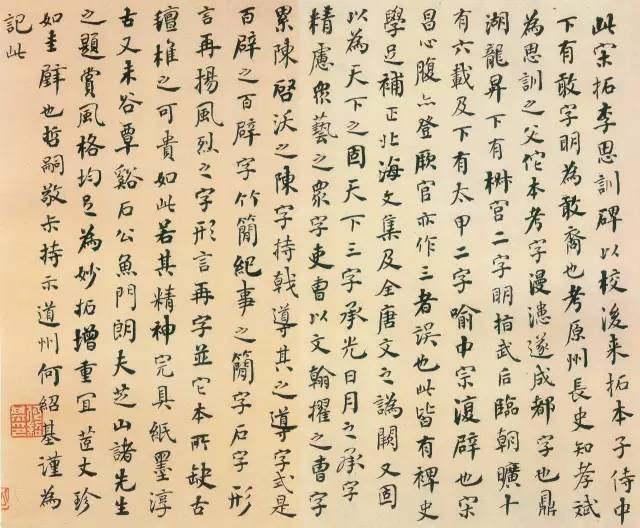 此宋拓李思訓碑以校後来拓本子侍中
下有敢字明為敢裔也考原州長史知孝斌
為思訓之父佗本考字漫漶遂成都字也鼎
湖龍昇下有椒宫二字明指武后臨朝曠十
有六載及下有太甲二字喻中宗復辟也宋
昌心腹亦登厥官亦作三者誤也此皆有裨史
學足補正北海文集及全唐文之譌闕又固
以為天下之固天下三字承光日月之承字
精慮衆藝之衆字吏曹以文翰擢之曹字
累陳啓沃之陳字持戟導其之導字式是
百辟之百辟字竹簡紀事之簡字石字形
言再揚風烈之字形言再字並它本所缺古
氊椎之可貴如此若其精神完具紙墨淳
古又未谷覃谿石公魚門朗夫芝山諸先生
之題賞風格均足為妙拓增重宜丈珍
如圭璧也哲嗣敬持示道州何紹基謹為
記此